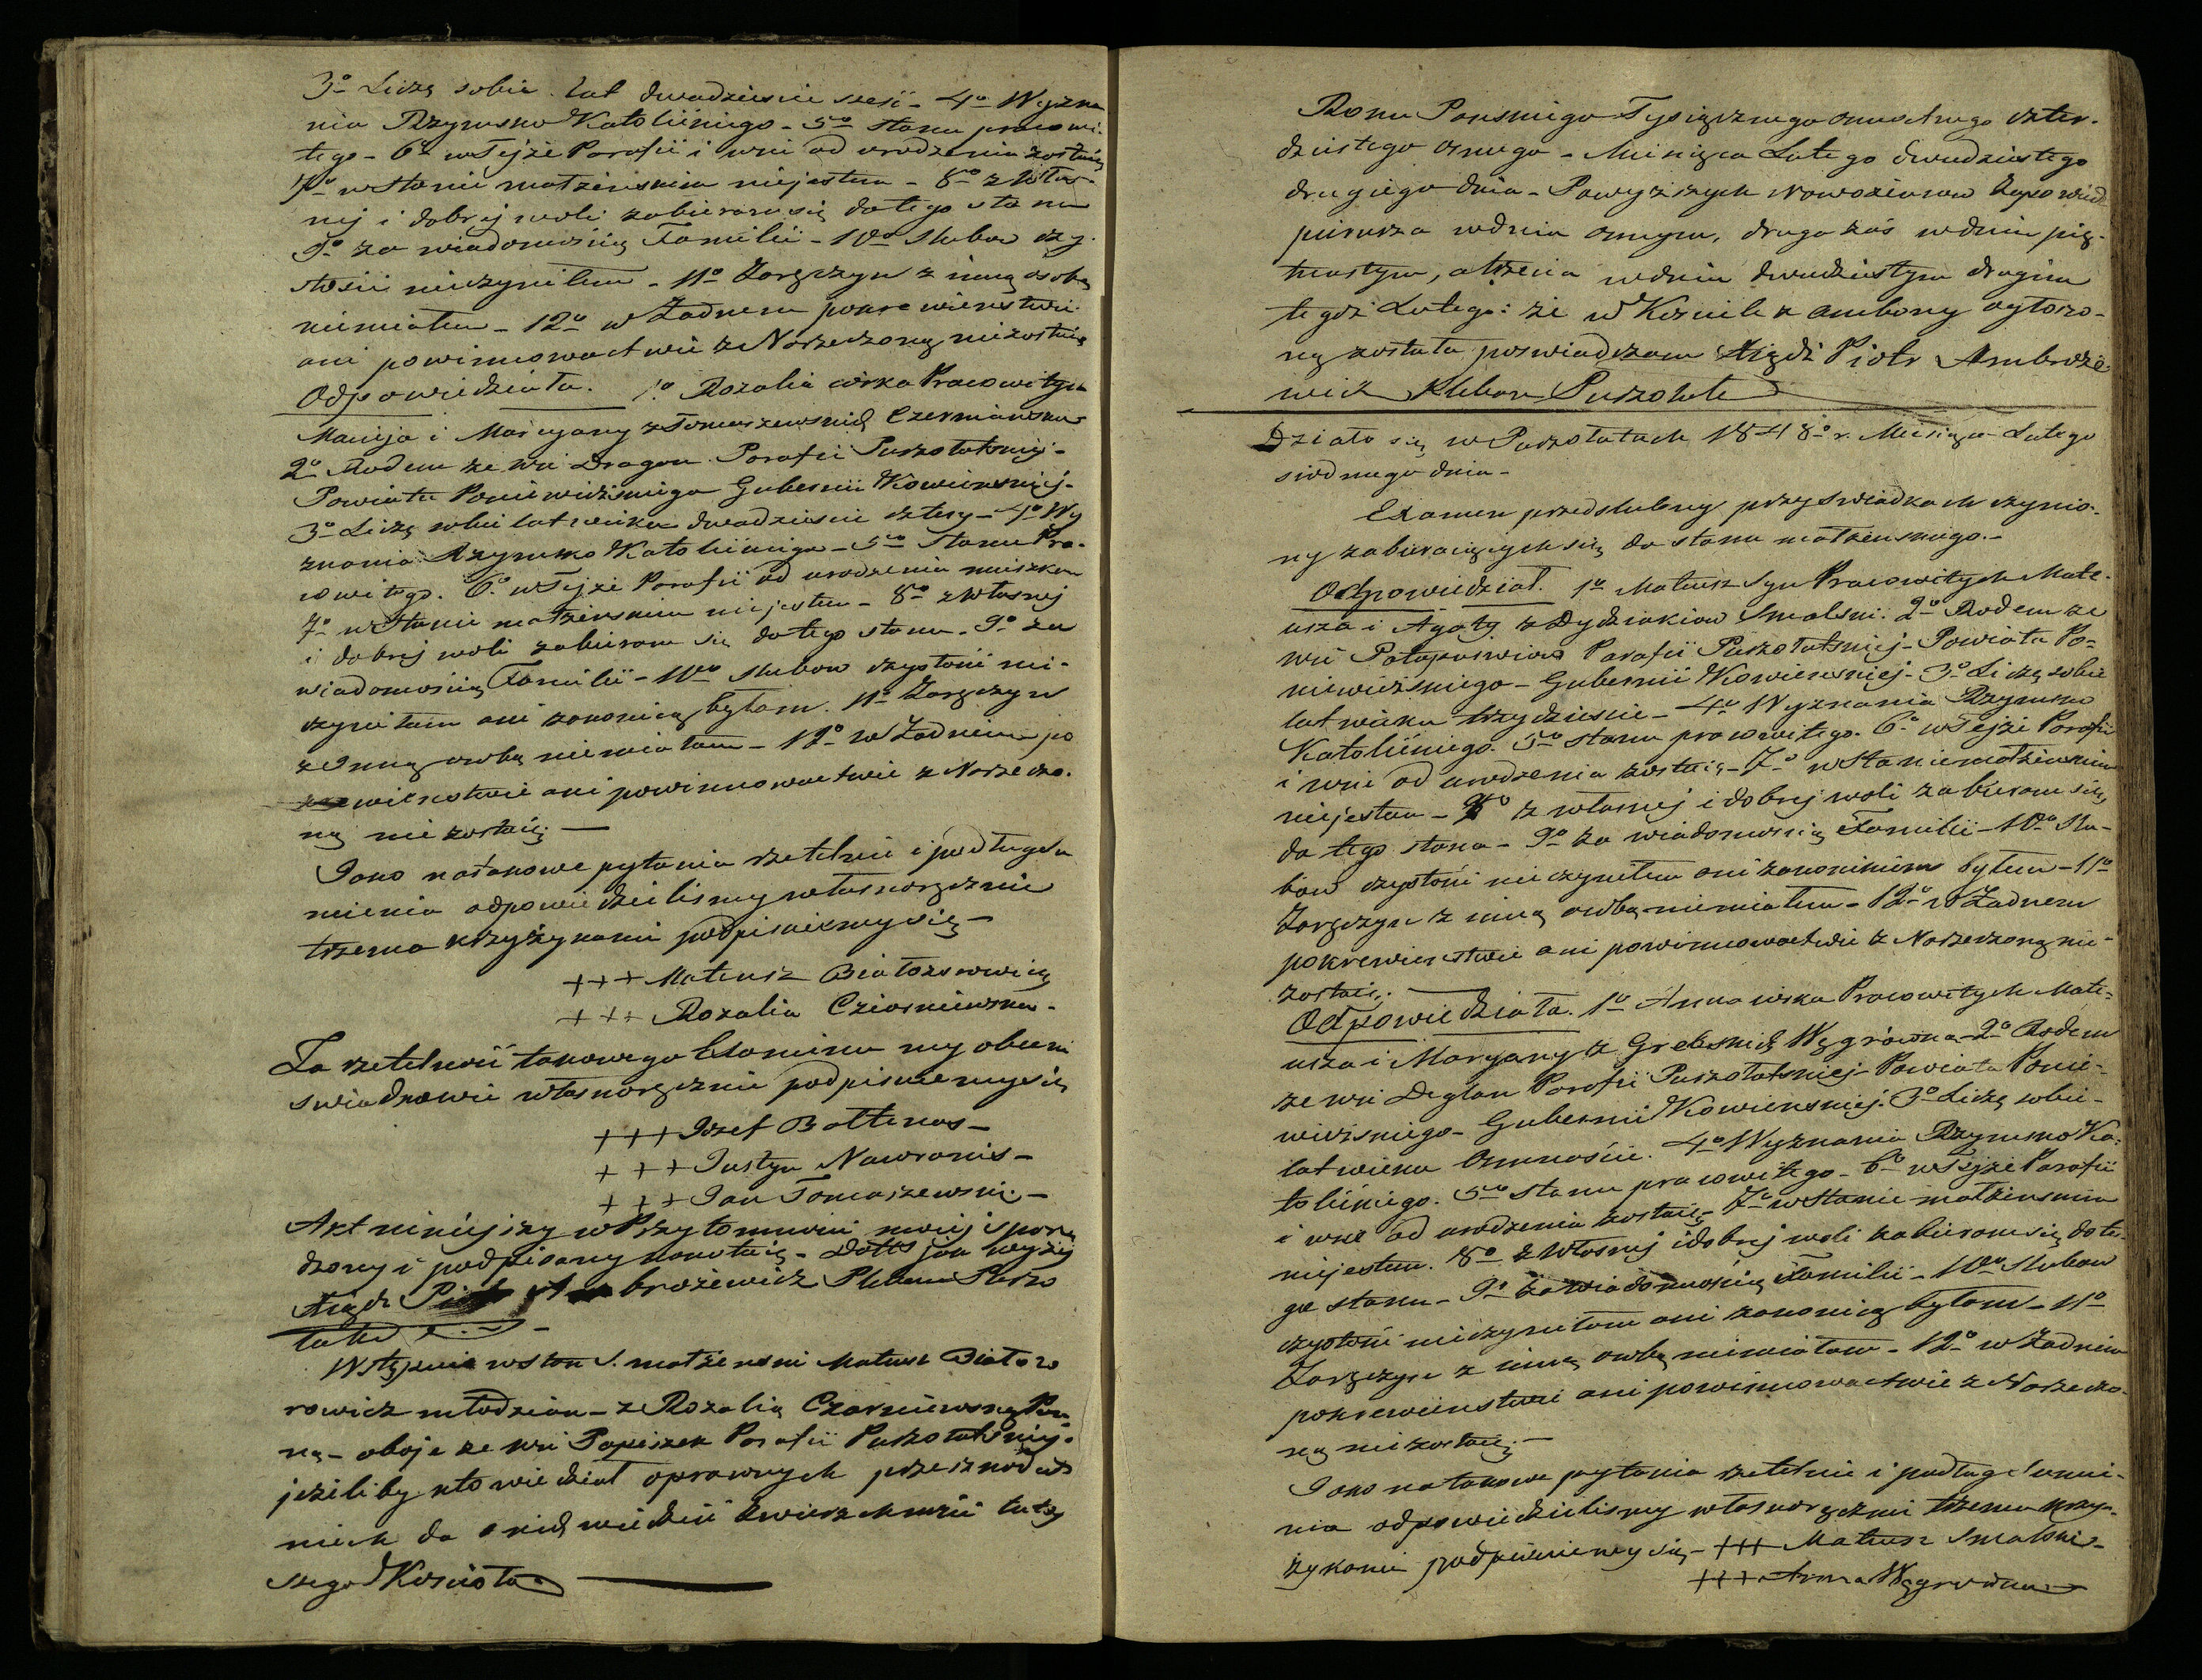 3º Liczę sobie lat dwadzieście sześć - 4º Wyzna
nia Rzymsko Katolickiego - 5to stanu pracowi-
tego - 6º w Tejże Parafii i wsi od urodzenia zostaię
7º w Stanie małżeńskim niejestem - 8º z włas-
nej i dobrej woli zabieram się do tego stanu
9º za wiadomością Familii - 10º ślubow czy-
stości nieczyniłem - 11º Zaręczyn z inną osobą
niemiałem - 12º w Żadnem pokrewieństwie
ani powinowactwie z Narzeczoną niezostaię
Odpowiedziała. 1º Rozalia córka Pracowitych
Macieja i Maryanny z Tomaszewskich Czerniawska
2º Rodem ze wsi Dragan Parafii Puszołatskiej -
Powiatu Poniewiżskiego Gubernii Kowieńskiej -
3º Liczę sobie lat wieku dwadzieście cztery - 4º Wy
znania Rzymsko Katolickiego - 5to Stanu Pra-
cowitego. 6º w Tejże Parafii od urodzenia mieszkam
7º w Stanie małżeńskim niejestem - 8º z własnej
i dobrej woli zabieram się do tego stanu. 9º za
wiadomością Familii - 10º ślubow czystości nie-
czyniłam ani zakonnicą byłam. 11º Zaręczyn
z Inną osobą niemiałam - 12º w Żadnem po
krewieństwie ani powinnowactwie z Narzeczo-
ną nie zostaię. —
Jako na takowe pytania rzetelnie i podług su
mienia odpowiedzieliśmy własnoręcznie
trzema krzyżykami podpisuiemy się -
+++ Mateusz Białozorowicz
+++ Rozalia Czerniewska -
Za rzetelność takowego Examinu my obecni
swiadkowie własnoręcznie podpisuiemy się
+++ Jozef Bołtenas -
+++ Justyn Nawronis -
+++ Jan Tomaszewski -
Akt ninieyszy w Przytomności moiej sporzą
dzony i podpisany konotuię - Datt jak wyżej
Xiądz Piotr Ambrożewicz Pleban Puszo
łatski
Wstępuie w stan S. małżeński Mateusz Białozo
rowicz młodzian - z Rozalią Czerniewską Pan
ną - oboje ze wsi Papiszek Parafii Puszołatskiej -
jeżeliby kto wiedział oprawnych przeszkodach
niech da o nich wiedzieć Zwierzchności tutey
szego Kościoła —
Roku Pańskiego Tysiącznego osmsetnego czter-
dziestego osmego - Miesiąca Lutego dwudziestego
drugiego dnia - Powyższych Nowożeńcow Zapowiedź
pierwsza w dniu osmym, druga zaś w dniu pięt-
nastym, a trzecia w dniu dwudziestym drugim
tegoż Lutego: że w Kościele z ambony ogłoszo-
ną została poswiadczam Xiądz Piotr Ambroże
wicz Pleban Puszołatski
Działo się w Puszołatach 1848º r. Miesiąca Lutego
siodmego dnia -
Examen przedślubny przy swiadkach czynio-
ny zabieraiących się do stanu małżeńskiego. -
Odpowiedział. 1º Mateusz Syn Pracowitych Mate-
usza i Agaty z Dydziakiow Smalski. 2º Rodem ze
wsi Parafii Puszołatskiej - Powiatu Po-
niewieżskiego - Gubernii Kowieńskiej - 3º Liczę sobie
lat wieku trzydzieście - 4º Wyznania Rzymsko
Katolickiego. 5to Stanu pracowitego. 6º w Tejże Parafii
i wsi od urodzenia zostaię - 7º w Stanie małżeńskim
niejestem - 8º z własnej i dobrej woli zabieram się
do tego stanu - 9º za wiadomością Familii - 10º ślu-
bow czystości nieczyniłem ani zakonnikiem byłem - 11º
Zaręczyn z inną osobą niemiałem - 12º w Żadnem
pokrewieństwie ani powinnowactwie z Narzeczoną nie-
zostaię. —
Odpowiedziała. 1º Anna córka Pracowitych Mate-
usza i Maryanny z Grebskich Węgrówna - 2º Rodem
ze wsi Deglan Parafii Puszołatskiej - Powiatu Ponie-
wieżskiego - Gubernii Kowieńskiej. 3º Liczę sobie -
lat wieku Osmnaście. 4º Wyznania Rzymsko Ka-
tolickiego. 5to Stanu pracowitego - 6º w Tejże Parafii
i wsi od urodzenia zostaię - 7º w Stanie małżeńskim
niejestem. 8º z własnej i dobrej woli zabieram się do te-
go stanu - 9º za wiadomością Familii - 10º ślubow
czystości nieczyniłam ani zakonnicą byłam - 11º
Zaręczyn z inną osobą niemiałam - 12º w Żadnem
pokrewieństwie ani powinnowactwie z Narzeczo-
ną nie zostaię. —
Jako na takowe pytania rzetelnie i podług sumie-
nia odpowiedzieliśmy własnoręcznie trzema krzy-
żykami podpisuiemy się - +++ Mateusz Smalski -
+++ Anna Węgrówna